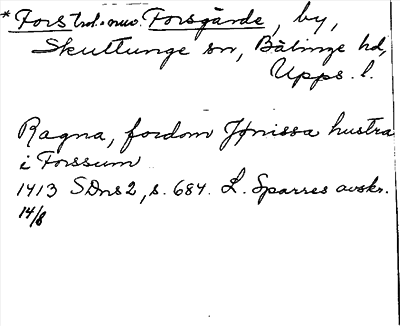 * Fors trol. nuv. Forsgärde, by,
Skuttunge sn, Bälinge hd,
Upps. l.
Ragna, fordom Jønissa hustra
i Forssum
1413 SDns2, s. 684. L. Sparres avskr.
14/8